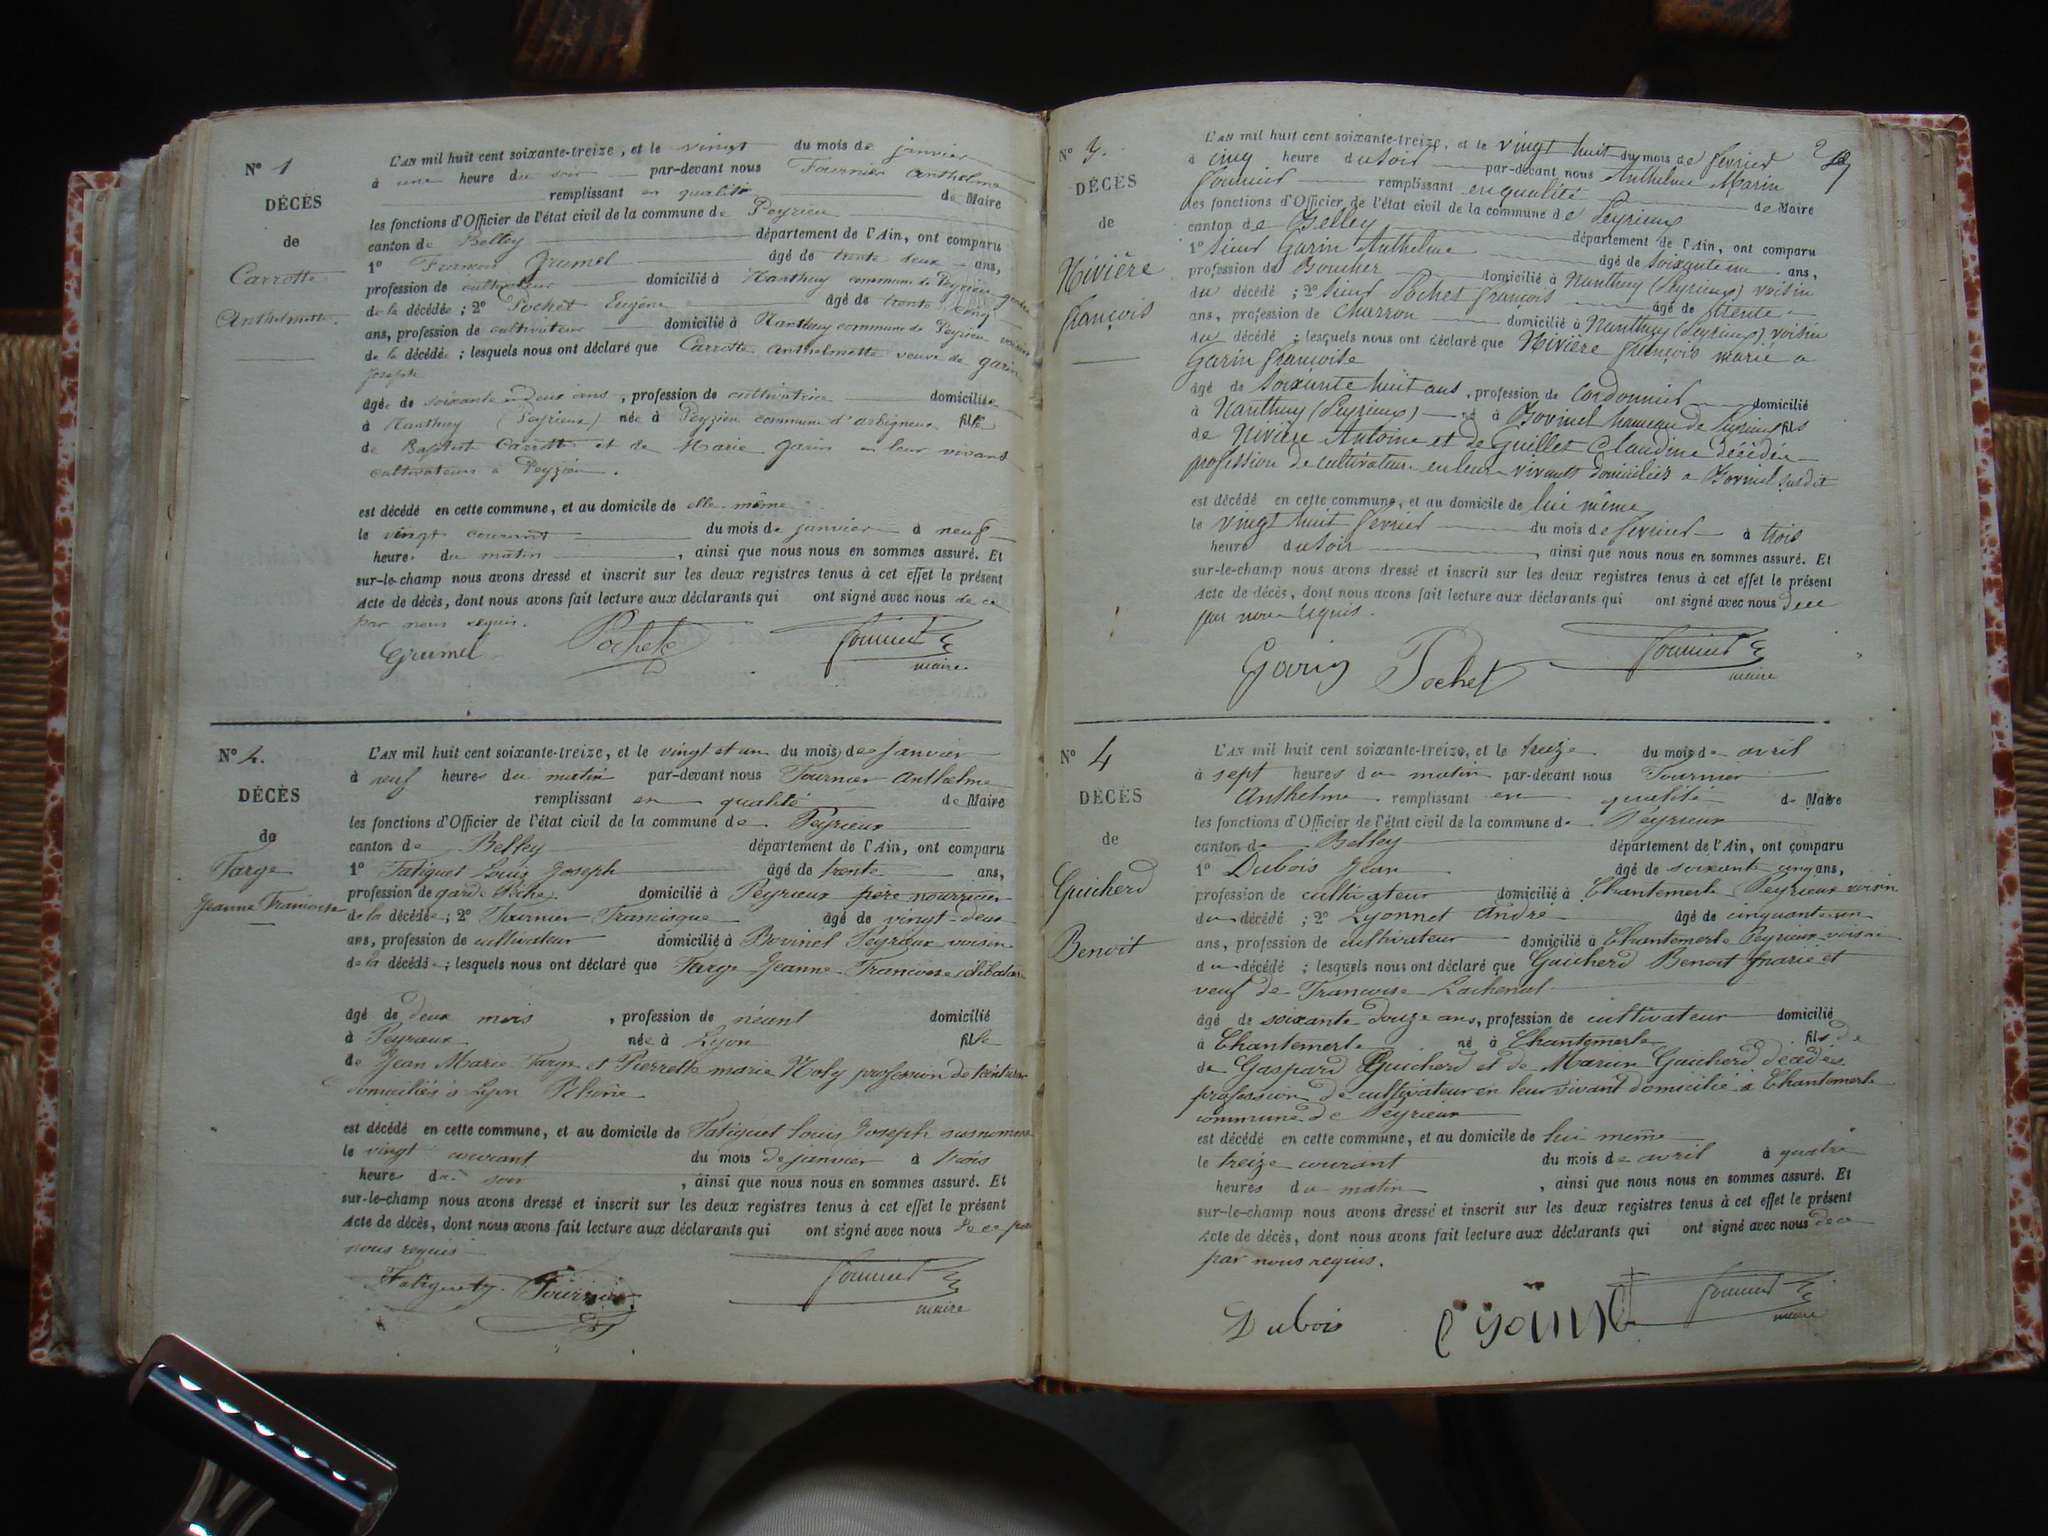 N° 1
DÉCÈS
de
Carrotte
Anthelmette.
L'AN mil huit cent soixante-treize, et le vingt du mois de janvier
à une heure du soir par-devant nous Fournier Anthelme
remplissant en qualité de Maire
les fonctions d'Officier de l'état civil de la commune de Peyrieu
canton de Belley département de l'Ain, ont comparu
1° François Grumel âgé de trente deux ans,
profession de cultivateur domicilié à Nanthuy commune de Peyrieu
de la décédée ; 2° Pochet Eugène âgé de trente cinq
ans, profession de cultivateur domicilié à Nanthuy commune de Peyrieu voisin
de la décédée ; lesquels nous ont déclaré que Carrotte Anthelmette veuve de garin
joseph
âgée de soixante deux ans, profession de cultivatrice domiciliée
à Nanthuy (Peyrieux) née à Peyzieu commune d'arbignieu fille
de Baptiste Carrotte et de Marie garin en leur vivant
cultivateurs à Peyzieu.
est décédé en cette commune, et au domicile de elle même
le vingt courant du mois de janvier à neuf
heures du matin, ainsi que nous nous en sommes assuré. Et
sur-le-champ nous avons dressé et inscrit sur les deux registres tenus à cet effet le présent
Acte de décès, dont nous avons fait lecture aux déclarants qui ont signé avec nous de ce
par nous requis.
Grumel Pochet Fournier
maire
N° 2.
DÉCÈS
de
Farge
Jeanne Françoise
L'AN mil huit cent soixante-treize, et le vingt et un du mois de janvier
à neuf heures du matin par-devant nous Fournier Anthelme
remplissant en qualité de Maire
les fonctions d'Officier de l'état civil de la commune de Peyrieux
canton de Belley département de l'Ain, ont comparu
1° Fatiguet Louis Joseph âgé de trente ans,
profession de garde pêche domicilié à Peyrieux père nourricier
de la décédée ; 2° Fournier Francisque âgé de vingt-deux
ans, profession de cultivateur domicilié à Bovinel Peyrieux voisin
de la décédée ; lesquels nous ont déclaré que Farge Jeanne Françoise célibataire
âgé de deux mois, profession de néant domicilié
à Peyrieux née à Lyon fille
de Jean Marie Farge et Pierrette marie Noly profession de teinturier
domiciliés à Lyon Rhône
est décédé en cette commune, et au domicile de Fatiguet Louis Joseph susnommé
le vingt courant du mois de janvier à trois
heures du soir, ainsi que nous nous en sommes assuré. Et
sur-le-champ nous avons dressé et inscrit sur les deux registres tenus à cet effet le présent
Acte de décès, dont nous avons fait lecture aux déclarants qui ont signé avec nous de ce par
nous requis
Fatiguet Fournier Fournier
maire
N° 3.
DÉCÈS
de
Nivière
françois
L'AN mil huit cent soixante-treize, et le vingt huit du mois de fevrier
à cinq heure du soir par-devant nous Anthelme Marin
fournier remplissant en qualité de Maire
les fonctions d'Officier de l'état civil de la commune de Peyrieux
canton de Belley département de l'Ain, ont comparu
1° sieur Garin Anthelme âgé de soixante un ans,
profession de Boucher domicilié à Nanthuy (Peyrieux) voisin
du décédé ; 2° sieur Pochet françois âgé de trente
ans, profession de Charron domicilié à Nanthuy (Peyrieux) voisin
du décédé ; lesquels nous ont déclaré que Nivière françois marié a
Garin françoise
âgé de soixante huit ans, profession de Cordonnier domicilié
à Nanthuy (Peyrieux) né à Bovinel hameau de Peyrieux fils
de Nivière Antoine et de Guillet Claudine décédée
profession de cultivateur en leur vivant domiciliés a Bovinel susdit
est décédé en cette commune, et au domicile de lui même
le vingt huit fevrier du mois de fevrier à trois
heure du soir, ainsi que nous nous en sommes assuré. Et
sur-le-champ nous avons dressé et inscrit sur les deux registres tenus à cet effet le présent
Acte de décès, dont nous avons fait lecture aux déclarants qui ont signé avec nous de ce
par nous requis.
Garin Pochet Fournier
maire
N° 4
DÉCÈS
de
Guicherd
Benoit
L'AN mil huit cent soixante-treize, et le treize du mois de avril
à sept heures du matin par-devant nous Fournier
Anthelme remplissant en qualité de Maire
les fonctions d'Officier de l'état civil de la commune de Peyrieux
canton de Belley département de l'Ain, ont comparu
1° Dubois Jean âgé de soixante cinq ans,
profession de cultivateur domicilié à Chantemerle Peyrieux voisin
du décédé ; 2° Lyonnet André âgé de cinquante-un
ans, profession de cultivateur domicilié à Chantemerle Peyrieux voisin
du décédé ; lesquels nous ont déclaré que Guicherd Benoit marié et
veuf de Françoise Lachenal
âgé de soixante douze ans, profession de cultivateur domicilié
à Chantemerle né à Chantemerle fils de
de Gaspard Guicherd et de Marin Guicherd décédés
profession de cultivateur en leur vivant domicilié à Chantemerle
commune de Peyrieux
est décédé en cette commune, et au domicile de lui même
le treize courant du mois de avril à quatre
heures du matin, ainsi que nous nous en sommes assuré. Et
sur-le-champ nous avons dressé et inscrit sur les deux registres tenus à cet effet le présent
Acte de décès, dont nous avons fait lecture aux déclarants qui ont signé avec nous de ce
par nous requis.
Dubois Fournier
maire